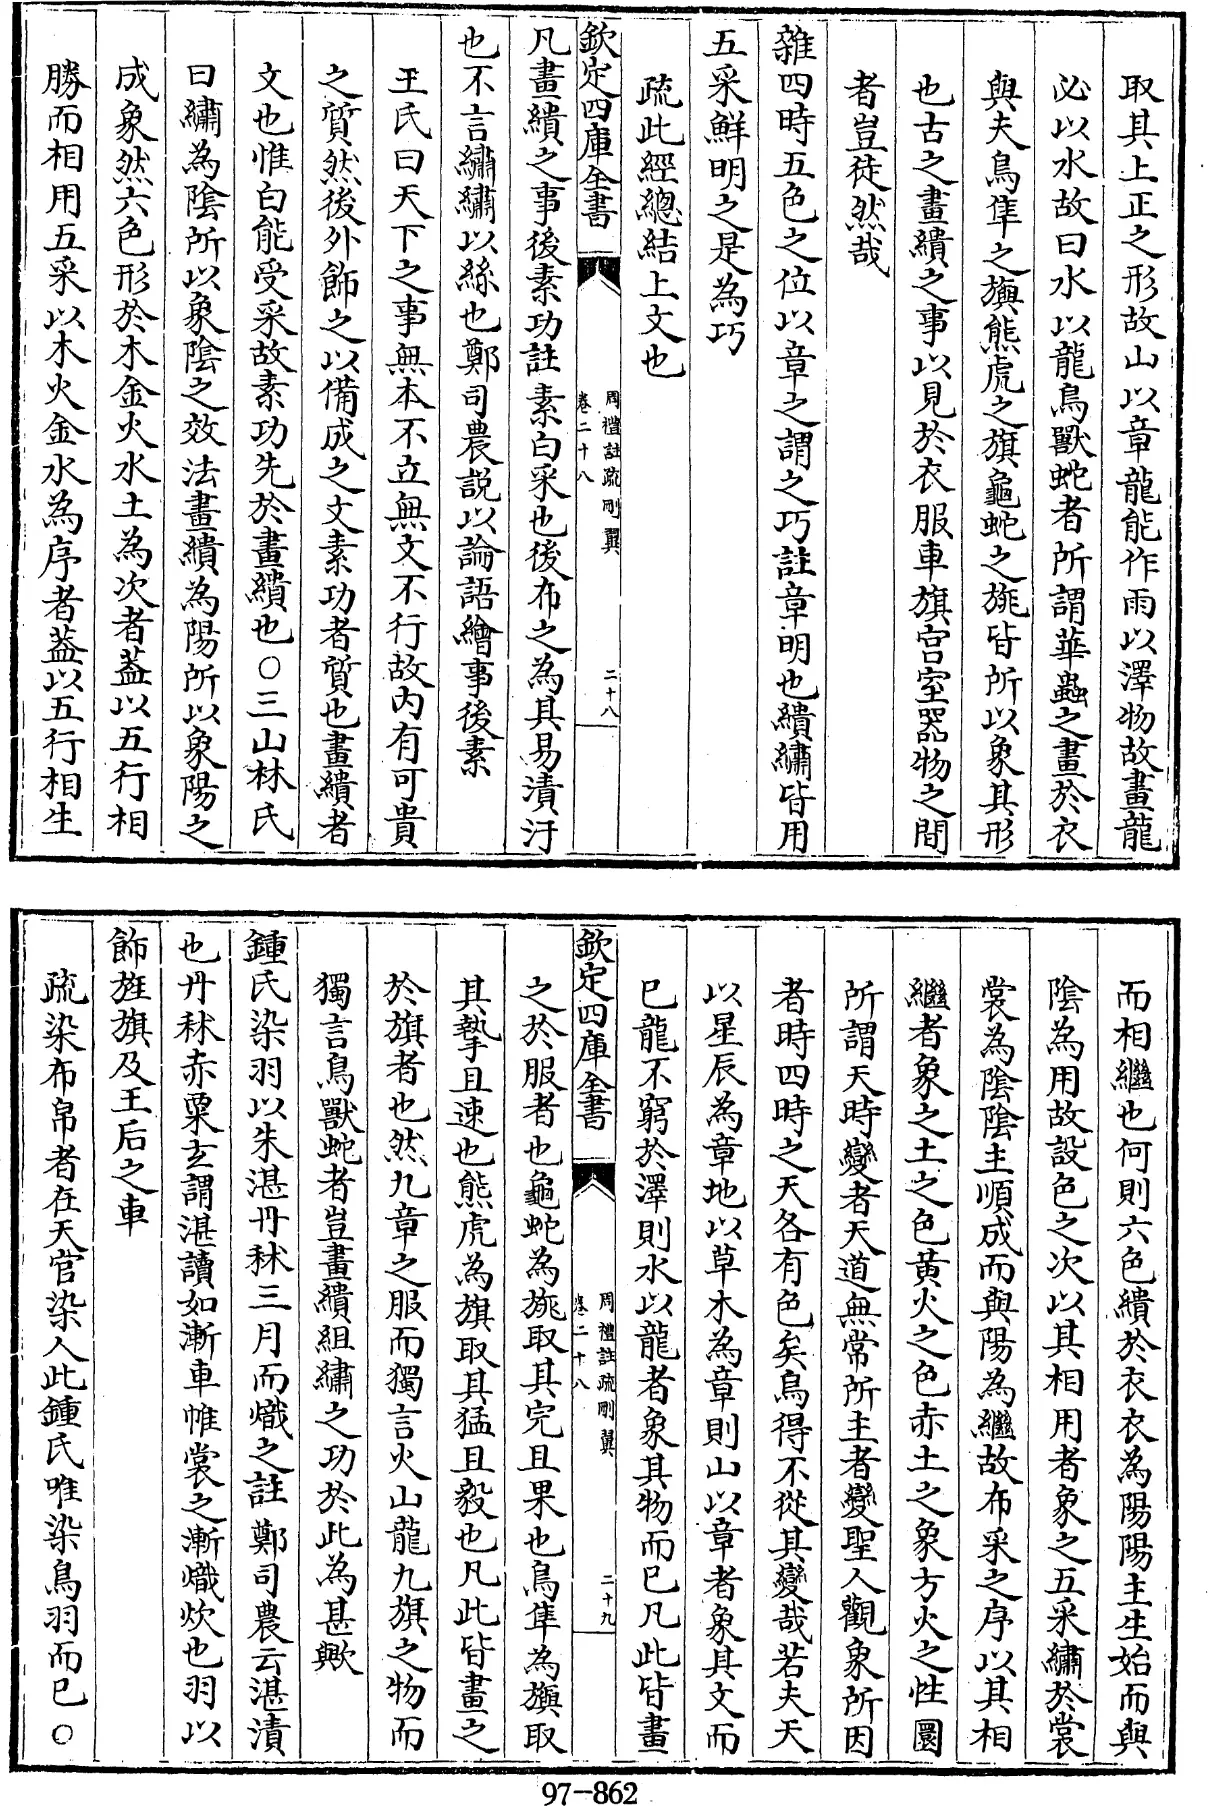 取其上正之形故山以章龍能作雨以澤物故畫龍
必以水故曰水以龍鳥獸蛇者所謂華蟲之畫於衣
與夫鳥隼之旟熊虎之旗龜蛇之旐皆所以象其形
也古之畫繢之事以見於衣服車旗宫室器物之間
者豈徒然哉
雜四時五色之位以章之謂之巧註章明也繢繡皆用
五采鮮明之是為巧
疏此經總結上文也
欽定四庫全書
周禮註疏刪翼
卷二十八
二十八
凡畫繢之事後素功註素白采也後布之為其易漬汙
也不言繡繡以絲也鄭司農説以論語繪事後素
王氏曰天下之事無本不立無文不行故内有可貴
之質然後外飾之以備成之文素功者質也畫繢者
文也惟白能受采故素功先於畫繢也○三山林氏
曰繡為陰所以象陰之效法畫繢為陽所以象陽之
成象然六色形於木金火水土為次者葢以五行相
勝而相用五采以木火金水為序者葢以五行相生
而相繼也何則六色繢於衣衣為陽陽主生始而與
陰為用故設色之次以其相用者象之五采繡於裳
裳為陰陰主順成而與陽為繼故布采之序以其相
繼者象之土之色黄火之色赤土之象方火之性圜
所謂天時變者天道無常所主者變聖人觀象所因
者時四時之天各有色矣烏得不從其變哉若夫天
以星辰為章地以草木為章則山以章者象其文而
已龍不窮於澤則水以龍者象其物而已凡此皆畫
欽定四庫全書
周禮註疏刪翼
卷二十八
二十九
之於服者也龜蛇為旐取其完且果也鳥隼為旟取
其摯且速也熊虎為旗取其猛且毅也凡此皆畫之
於旗者也然九章之服而獨言火山龍九旗之物而
獨言鳥獸蛇者豈畫繢組繡之功於此為甚歟
鍾氏染羽以朱湛丹秫三月而熾之註鄭司農云湛漬
也丹秫赤粟玄謂湛讀如漸車帷裳之漸熾炊也羽以
飾旌旗及王后之車
疏染布帛者在天官染人此鍾氏唯染鳥羽而已○
97-862